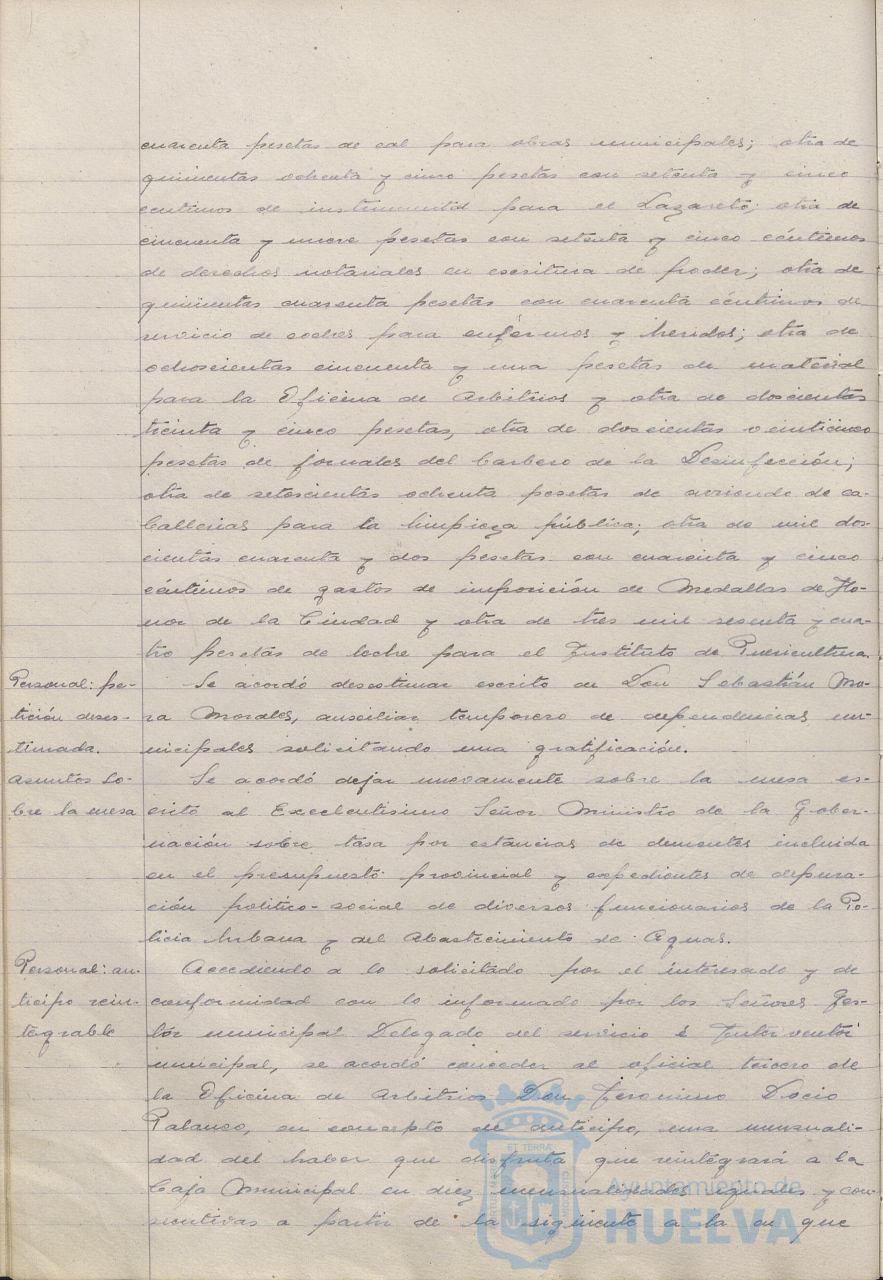 cuarenta pesetas de cal para obras municipales; otra de
quinientas ochenta y cinco pesetas con setenta y cinco
centimos de instrumental para el Lazareto; otra de
cincuenta y nueve pesetas con setenta y cinco céntimos
de derechos notariales en escritura de poder; otra de
quinientas cuarenta pesetas con cuarenta céntimos de
servicio de coches para enfermos y heridos; otra de
ochoscientas cincuenta y una pesetas de material
para la Oficina de Arbitrios y otra de doscientas
treinta y cinco pesetas, otra de doscientas veinticinco
pesetas de jornales del barbero de la Desinfección;
otra de setescientas ochenta pesetas de arriendo de ca-
ballerias para la limpieza pública; otra de mil dos-
cientas cuarenta y dos pesetas con cuarenta y cinco
céntimos de gastos de imposición de Medallas de Ho-
nor de la Ciudad y otra de tres mil sesenta y cua-
tro pesetas de leche para el Instituto de Puericultura.
Personal: pe-
tición deses-
timada.
Se acordó desestimar escrito de Don Sebastián Mo-
ra Morales, auxiliar temporero de dependencias mu-
nicipales solicitando una gratificación.
asuntos so-
bre la mesa
Se acordó dejar nuevamente sobre la mesa es-
crito al Excelentisimo Señor Ministro de la Gober-
nación sobre tasa por estancias de dementes incluida
en el presupuesto provincial y expedientes de depura-
ción politico-social de diversos funcionarios de la Po-
licia Urbana y del Abastecimiento de Aguas.
Personal: an-
ticipo rein-
tegrable
Accediendo a lo solicitado por el interesado y de
conformidad con lo informado por los Señores Ges-
tor municipal Delegado del servicio é Interventor
municipal, se acordó conceder al oficial tercero de
la Oficina de Arbitrios Don Jeronimo Docio
Palanco, en concepto de anticipo, una mensuali-
dad del haber que disfruta que reintegrará a la
Caja Municipal en diez mensualidades iguales y con-
secutivas a partir de la siguiente a la en que
Ayuntamiento de
HUELVA